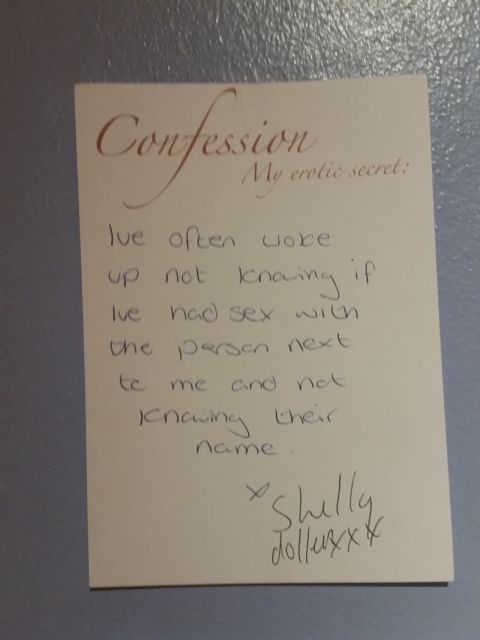 Confession
My erotic secret:
Ive often woke
up not knowing if
Ive had sex with
the person next
to me and not
knowing their
name.
x Shelly
xxx